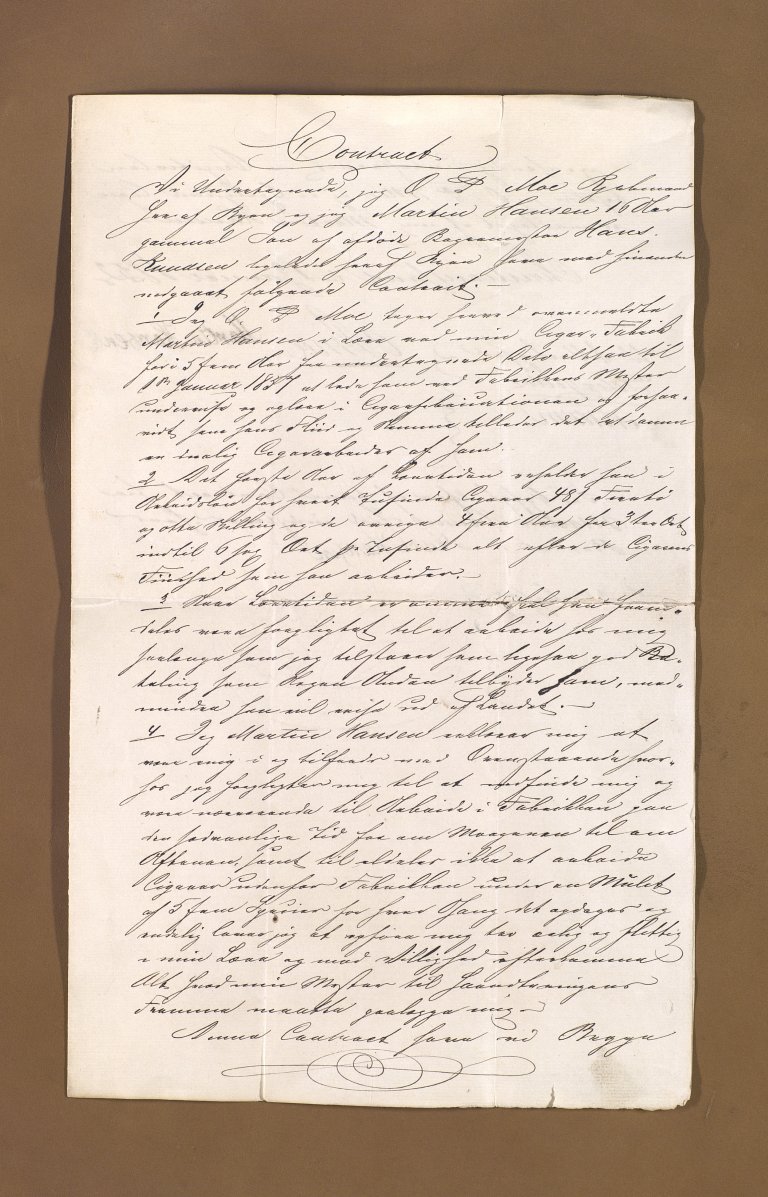 Contract
Vi Undertegnede, jeg O P Moe Kjøbmand
her af Byen og jeg Martin Hansen 16 Aar
gammel Søn af afdøde Bagermester Hans
Knudsen ligeledes heraf Byen have med hinanden
indgaaet følgende Contract:—
1 Jeg O P Moe tager herved ovenmeldte
Martin Hansen i Lære ved min Cigar-Fabrik
for i 5 fem Aar fra undertegnede Dato altsaa til
1te Januar 1857 at lade ham ved Fabrikkens Mester
undervise og oplære i Cigarfabricationen og forsaa-
vidt som hans Fliid og Nemme tillader det at danne
en duelig Cigararbeider af ham.
2 Det første Aar af Læretiden erholder han i
Arbeidsløn for hvert Tusinde Cigarer 48 / Fireti
og otte Skilling og de øvrige 4 fire Aar fra 3 tre Ort
indtil 6 sex Ort pr Tusinde alt efter de Cigarers
Fiinhed som han arbeider.—
3 Naar Læretiden er omme skal han frem-
deles være forpligtet til at arbeide hos mig
saalænge som jeg tilstaaer ham ligesaa god Be-
taling som Nogen Anden tilbyder ham, med-
mindre han vil reise ud af Landet.—
4 Jeg Martin Hansen erklærer mig at
være enig i og tilfreds med Ovenstaaende hvor-
hos jeg forpligter mig til at indfinde mig og
være nærværende til Arbeide i Fabrikken paa
den sædvanlige Tid fra om Morgenen til om
Aftenen, samt til aldeles ikke at arbeide
Cigarer udenfor Fabrikken under en Mulct
af 5 fem Specier for hver Gang det opdages og
endelig lover jeg at opføre mig tro ærlig og flittig
i min Lære og med Villighed efterkomme
Alt hvad min Mester til Haandteringens
Fremme maatte paalægge mig.—
Denne Contract have vi Begge